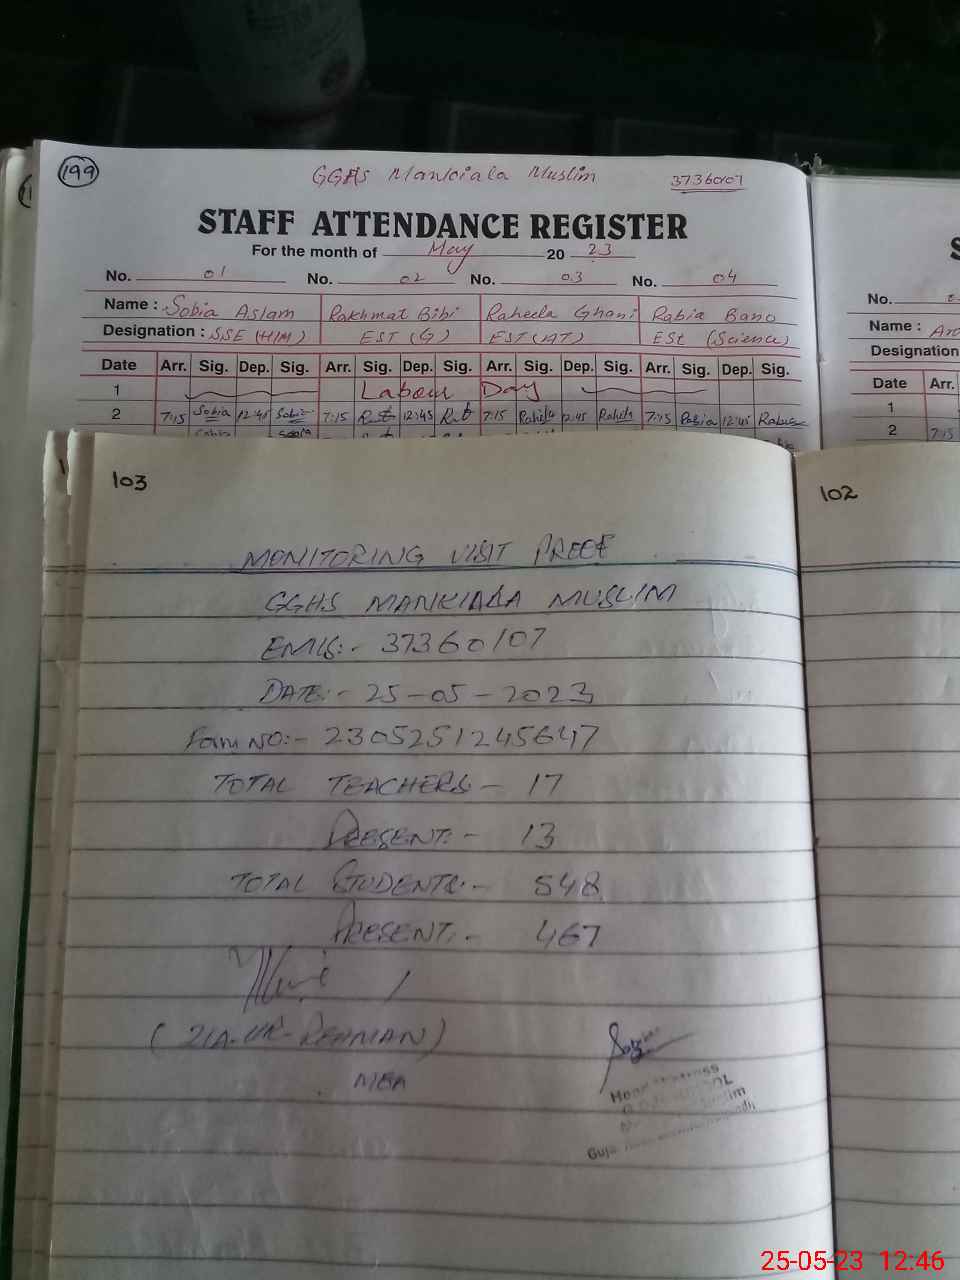 199
GGHS Mankiala Muslim 37360107
STAFF ATTENDANCE REGISTER
For the month of May 20 23
No. 01 No. 02 No. 03 No. 04
Name : Sobia Aslam Rakhmat Bibi Raheela Ghani Rabia Bano
Designation : SSE (H/M) EST (G) EST (AT) ESt (Science)
Date Arr. Sig. Dep. Sig. Arr. Sig. Dep. Sig. Arr. Sig. Dep. Sig. Arr. Sig. Dep. Sig.
1 Labour Day
2 7:15 Sobia 12:45 Sobia 7:15 12:45 7:15 Rahila 12:45 Rahila 7:15 Rabia 12:45 Rabia
No.
Name :
Designation
Date Arr.
1
2 7:15
103
MONITORING VISIT PROOF
GGHS MANKIALA MUSLIM
EMIS:- 37360107
DATE:- 25-05-2023
Form NO:- 2305251245647
TOTAL TEACHERS - 17
PRESENT:- 13
TOTAL STUDENTS:- 548
PRESENT:- 467
(ZIA-UR-REHMAN)
MEA
102
25-05-23 12:46